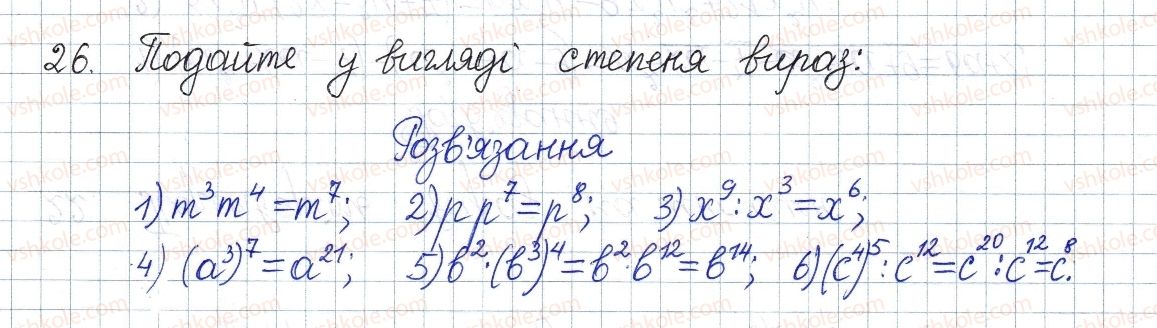 26. Подайте у вигляді степеня вираз:
Розв'язання
1) m³m⁴ = m⁷; 2) p p⁷ = p⁸; 3) x⁹ : x³ = x⁶;
4) (a³)⁷ = a²¹; 5) b²·(b³)⁴ = b²·b¹² = b¹⁴; 6) (c⁴)⁵ : c¹² = c²⁰ : c¹² = c⁸.